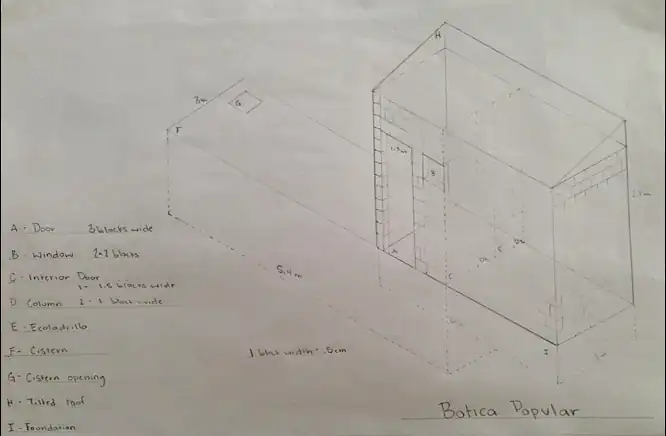 H
3m
G
F
1.9 m
B
A
C
E
5.4 m
I
A - Door 3 blocks wide
B - Window 2 × 2 blocks
C - Interior Door
1.5 blocks wide
D Column
E - Ecoladrillo
F - Cistern
G - Cistern opening
H - Tilted roof
I - Foundation
1 block width
Botica Popular